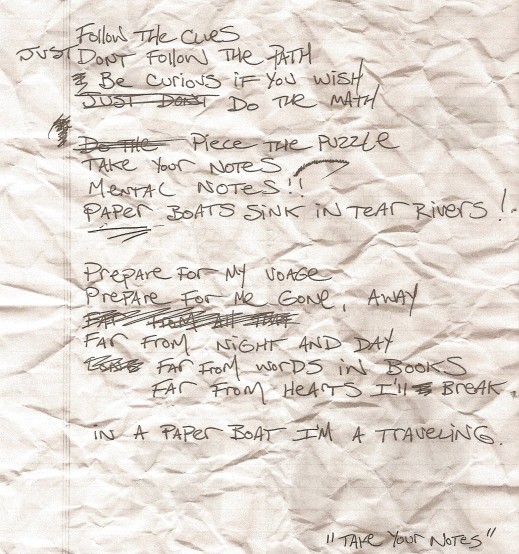 Follow The Clues
JUST Dont Follow The Path
Be Curious if You wish
JUST DONT Do The Math
Do The Piece The Puzzle
Take Your Notes
Mental Notes!!
Paper Boats Sink in Tear Rivers!
Prepare For My Voage
Prepare For Me Gone, Away
Far From All That
Far From Night And Day
Far From Words in Books
Far From Hearts I'll Break.
in A Paper Boat I'm A Traveling.
"Take Your Notes"